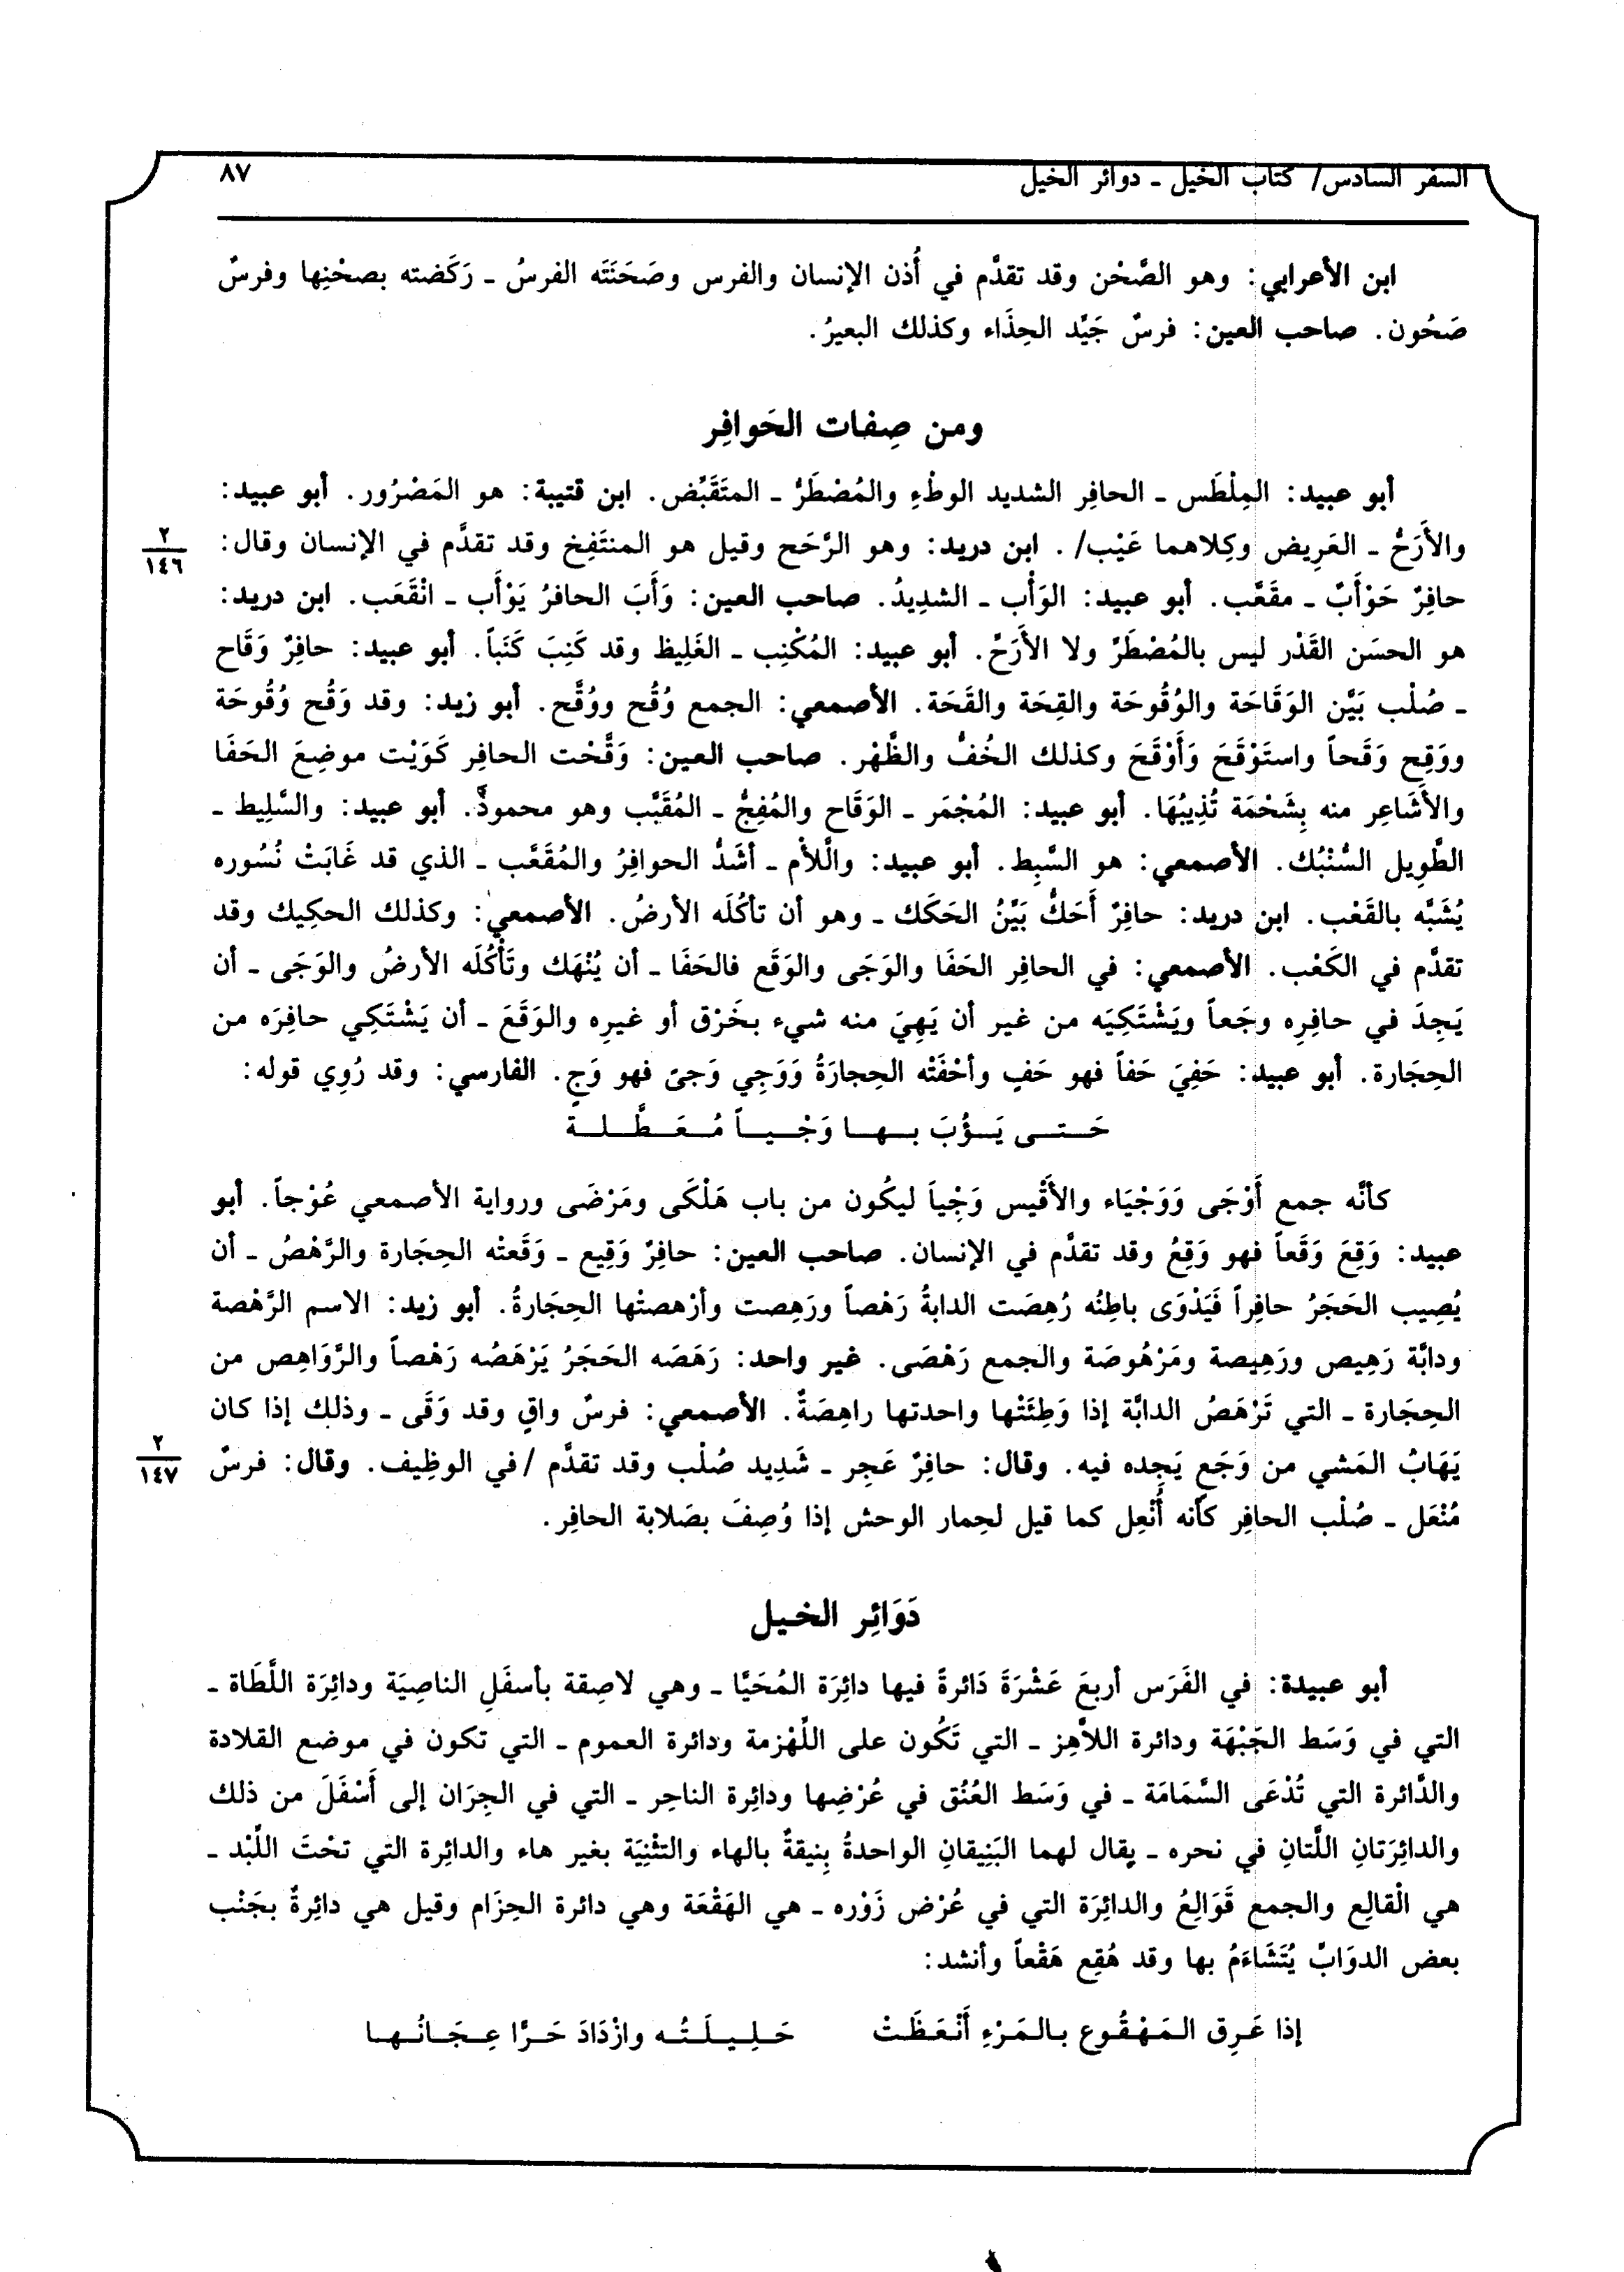 السفر السادس/ كتاب الخيل ـ دوائر الخيل
٨٧
ابن الأعرابي: وهو الصَّحْن وقد تقدَّم في أُذن الإنسان والفرس وصَحَنَتَه الفرسُ ـ رَكَضته بصحْنِها وفرسٌ
صَحُون. صاحب العين: فرسٌ جَيِّد الحِذَاء وكذلك البعيرُ.
ومن صِفات الحَوافِر
أبو عبيد: المِلْطَس ـ الحافِر الشديد الوطْءِ والمُصْطَرُّ ـ المتَقَبِّض. ابن قتيبة: هو المَصْرُور. أبو عبيد:
والأَرَحُّ ـ العَرِيض وكِلاهما عَيْب/ . ابن دريد: وهو الرَّحَح وقيل هو المنتَفِخ وقد تقدَّم في الإنسان وقال:
٢
١٤٦
حافِرٌ حَوْأَبٌ ـ مقَعَّب. أبو عبيد: الوَأْب ـ الشدِيدُ. صاحب العين: وَأَبَ الحافرُ يَوْأَب ـ انْقَعَب. ابن دريد:
هو الحسَن القَدْر ليس بالمُصْطَرِّ ولا الأَرَحِّ. أبو عبيد: المُكْنِب ـ الغَلِيظ وقد كَنِبَ كَنَباً. أبو عبيد: حافِرٌ وَقَاح
ـ صُلْب بَيِّن الوَقَاحَة والوُقُوحَة والقِحَة والقَحَة. الأصمعي: الجمع وُقُح ووُقَّح. أبو زيد: وقد وَقُح وُقُوحَة
ووَقِح وَقَحاً واستَوْقَحَ وَأَوْقَحَ وكذلك الخُفُّ والظَّهْر. صاحب العين: وَقَّحْت الحافِر كَوَيْت موضِعَ الحَفَا
والأَشَاعِر منه بِشَحْمَة تُذِيبُهَا. أبو عبيد: المُجْمَر ـ الوَقَاح والمُفِجُّ ـ المُقَبَّب وهو محموذٌ. أبو عبيد: والسَّلِيط ـ
الطَّوِيل السُّنْبُك. الأصمعي: هو السَّبِط. أبو عبيد: واللَّأم ـ أشَدُّ الحوافِرُ والمُقَعَّب ـ الذي قد غَابَتْ نُسُوره
يُشَبَّه بالقَعْب. ابن دريد: حافِرٌ أَحَكُّ بَيِّنُ الحَكَك ـ وهو أن تأكُلَه الأرضُ. الأصمعي: وكذلك الحكِيك وقد
تقدَّم في الكَعْب. الأصمعي: في الحافِر الحَفَا والوَجَى والوَقَع فالحَفَا ـ أن يُنْهَك وتَأْكُلَه الأرضُ والوَجَى ـ أن
يَجِدَ في حافِرِه وجَعاً ويَشْتَكِيَه من غير أن يَهِيَ منه شيء بخَرْق أو غيرِه والوَقَعَ ـ أن يَشْتَكِي حافِرَه من
الحِجَارة. أبو عبيد: حَفِيَ حَفاً فهو حَفٍ وأحْفَتْه الحِجارَةُ وَوَجِي وَجىً فهو وَجٍ. الفارسي: وقد رُوِي قوله:
حَتى يَؤُبَ بها وَجْياً مُعَطَّلة
كأنَّه جمع أَوْجَى وَوَجْيَاء والأقْيس وَجْياَ ليكُون من باب هَلْكَى ومَرْضَى ورواية الأصمعي عُوْجاً. أبو
عبيد: وَقِعَ وَقَعاً فهو وَقِعُ وقد تقدَّم في الإنسان. صاحب العين: حافِرٌ وَقِيع ـ وَقَعتْه الحِجَارة والرَّهْصُ ـ أن
يُصِيب الحَجَرُ حافِراً فَيَذْوَى باطِنُه رُهِصَت الدابةُ رَهْصاً ورَهِصت وأرْهصتْها الحِجَارةُ. أبو زيد: الاسم الرَّهْصة
ودابَّة رَهِيص ورَهِيصة ومَرْهُوصَة والجمع رَهْصَى. غير واحد: رَهَصَه الحَجَرُ يَرْهَصُه رَهْصاً والرَّوَاهِص من
الحِجَارة ـ التي تَرْهَصُ الدابَّة إذا وَطِئَتْها واحدتها راهِصَةٌ. الأصمعي: فرسٌ واقٍ وقد وَقَى ـ وذلك إذا كان
يَهَابُ المَشي من وَجَعٍ يَجِده فيه. وقال: حافِرٌ عَجِر ـ شَدِيد صُلْب وقد تقدَّم /في الوظِيف. وقال: فرسٌ
٢
١٤٧
مُنْعَل ـ صُلْب الحافِر كأنه أُنْعِل كما قيل لحِمار الوحش إذا وُصِفَ بصَلابة الحافِر.
دَوَائِر الخيل
أبو عبيدة: في الفَرَس أربعَ عَشْرَةَ دَائرةً فيها دائِرَة المُحَيَّا ـ وهي لاصِقة بأسفَلِ الناصِيَة ودائِرَة اللَّطَاة ـ
التي في وَسَط الجَبْهَة ودائرة اللاَّهِز ـ التي تَكُون على اللِّهْزِمة ودائرة العموم ـ التي تكون في موضع القلادة
والدَّائرة التي تُدْعَى السَّمَامَة ـ في وَسَط العُنُق في عُرْضِها ودائِرة الناحِر ـ التي في الجِرَان إلى أَسْفَلَ من ذلك
والدائِرَتانِ اللَّتانِ في نحره ـ يقال لهما البَنِيقانِ الواحدةُ بِنيقةٌ بالهاء والتثْنِيَة بغير هاء والدائِرة التي تحْتَ اللِّبْد ـ
هي الْقالِع والجمع قَوَالِعُ والدائِرَة التي في عُرْض زَوْره ـ هي الهَقْعَة وهي دائرة الحِزَام وقيل هي دائِرةٌ بجَنْب
بعض الدوَابِّ يُتَشَاءَمُ بها وقد هُقِع هَقْعاً وأنشد:
إذا عَرِق المَهْقُوع بالمَرْءِ أَنْعَظَتْ حَلِيلَتُه وازْدَادَ حَرًّا عِجَانُها